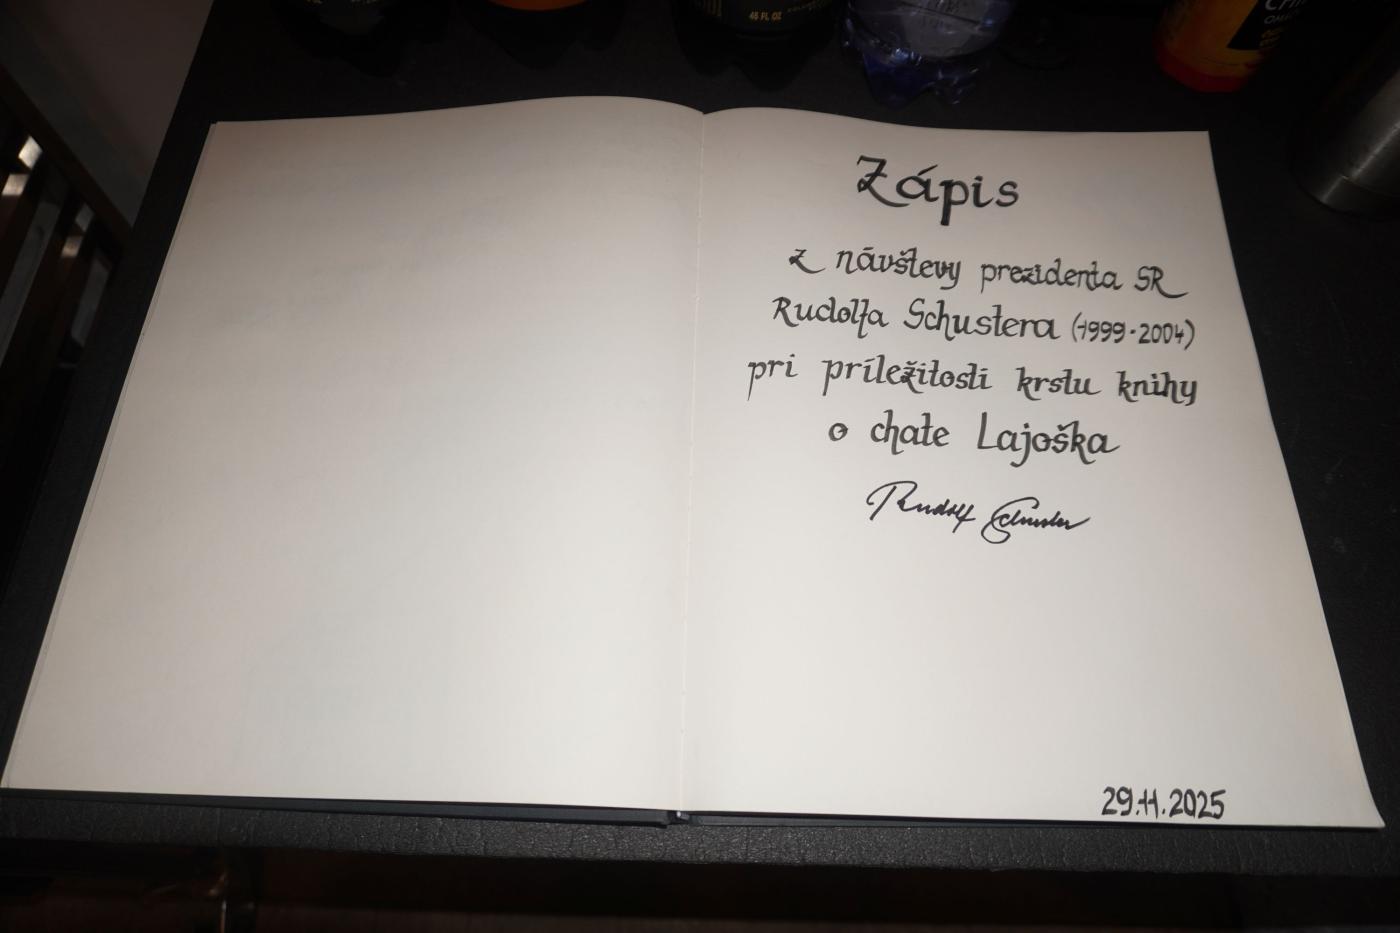 45 FL OZ
Zápis
z návštevy prezidenta SR
Rudolfa Schustera (1999-2004)
pri príležitosti krstu knihy
o chate Lajoška
Rudolf Schuster
29.11.2025